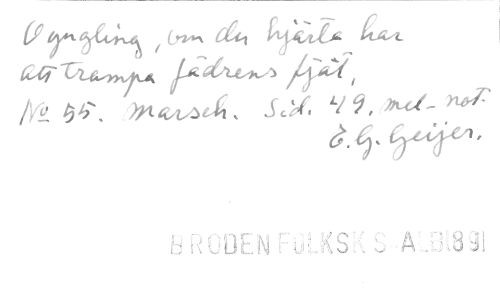 O yngling, om du hjärta har
att trampa fädrens fjät,
No 55. Marsch. Sid. 49. mel-not.
E. G. Geijer.
BRODEN FOLKSKS-ALB1891